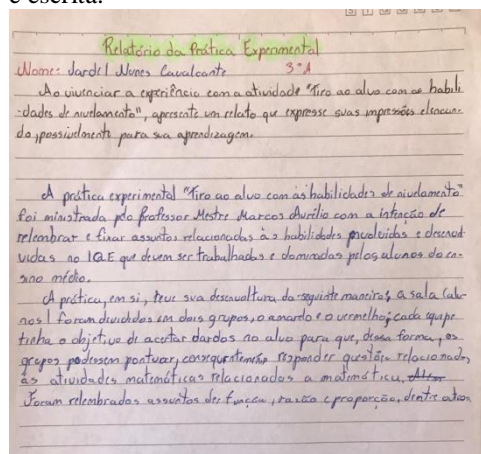 e escrita.
Relatório da Prática Experimental
Nome: Jardel Nunes Cavalcante 3º A
Ao vivenciar a experiência com a atividade "Tiro ao alvo com as habili
-dades de nivelamento", apresente um relato que expresse suas impressões elencan-
do, possivelmente para sua aprendizagem.
A prática experimental "Tiro ao alvo com as habilidades de nivelamento"
foi ministrada pelo Professor Mestre Marcos Aurélio com a intenção de
relembrar e fixar assuntos relacionados às habilidades e
vidas no IQE que devem ser trabalhados e dominados pelos alunos do en-
sino médio.
A prática, em si, teve sua desenvoltura da seguinte maneira, a sala (alu-
nos) foram divididos em dois grupos, o amarelo e o vermelho, cada equipe
tinha o objetivo de acertar dardos no alvo para que, dessa forma, os
grupos podessem pontuar, consequentemente responder questões relacionadas
às atividades matemáticas relacionados a matemática.
Foram relembrados assuntos de: função, razão e proporção, dentre outros